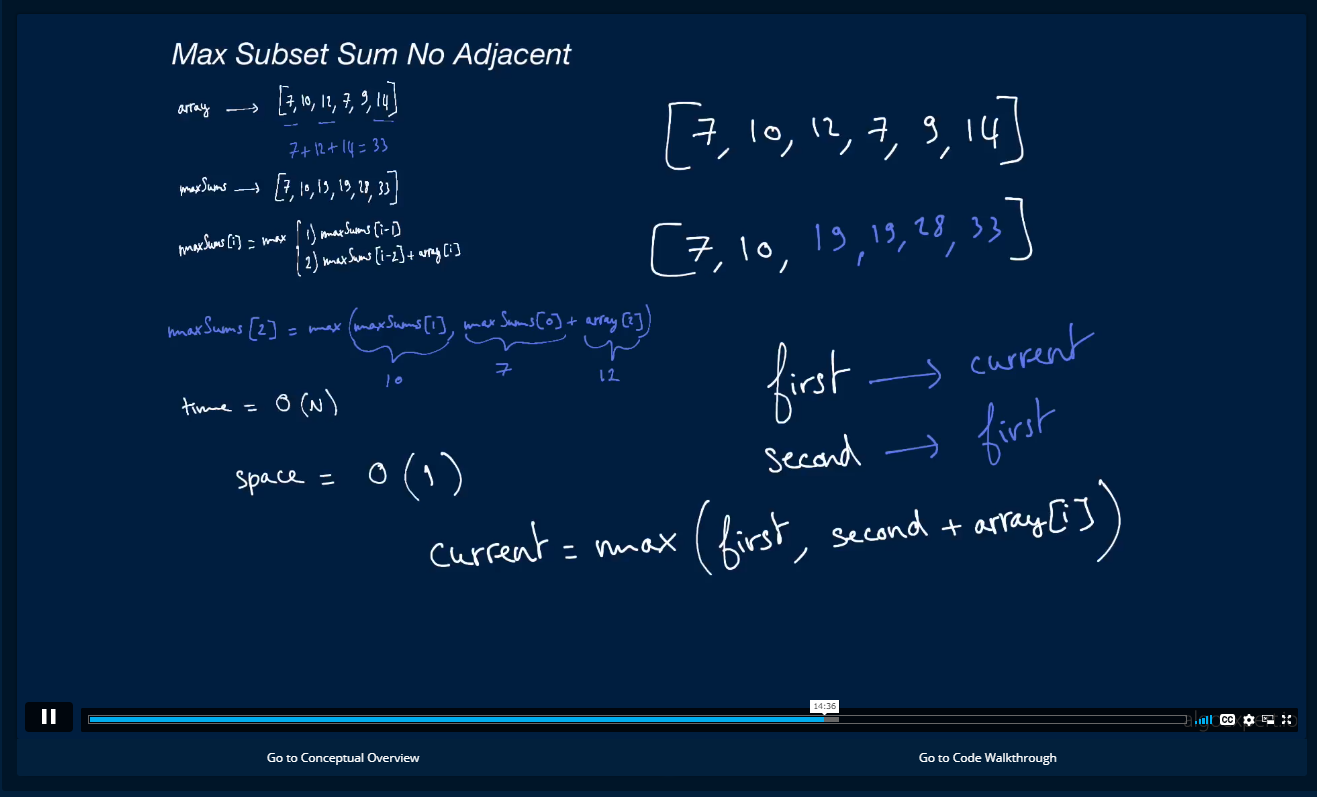 Max Subset Sum No Adjacent
array → [7, 10, 12, 7, 9, 14]
7+12+14 = 33
maxSums → [7, 10, 19, 19, 28, 33]
maxSums[i] = max { 1) maxSums[i-1]
2) maxSums[i-2] + array[i]
maxSums[2] = max(maxSums[1], maxSums[0] + array[2])
10 7 12
time = O(N)
space = O(1)
[7, 10, 12, 7, 9, 14]
[7, 10, 19, 19, 28, 33]
first → current
second → first
current = max(first, second + array[i])
14:36
CC
Go to Conceptual Overview
Go to Code Walkthrough